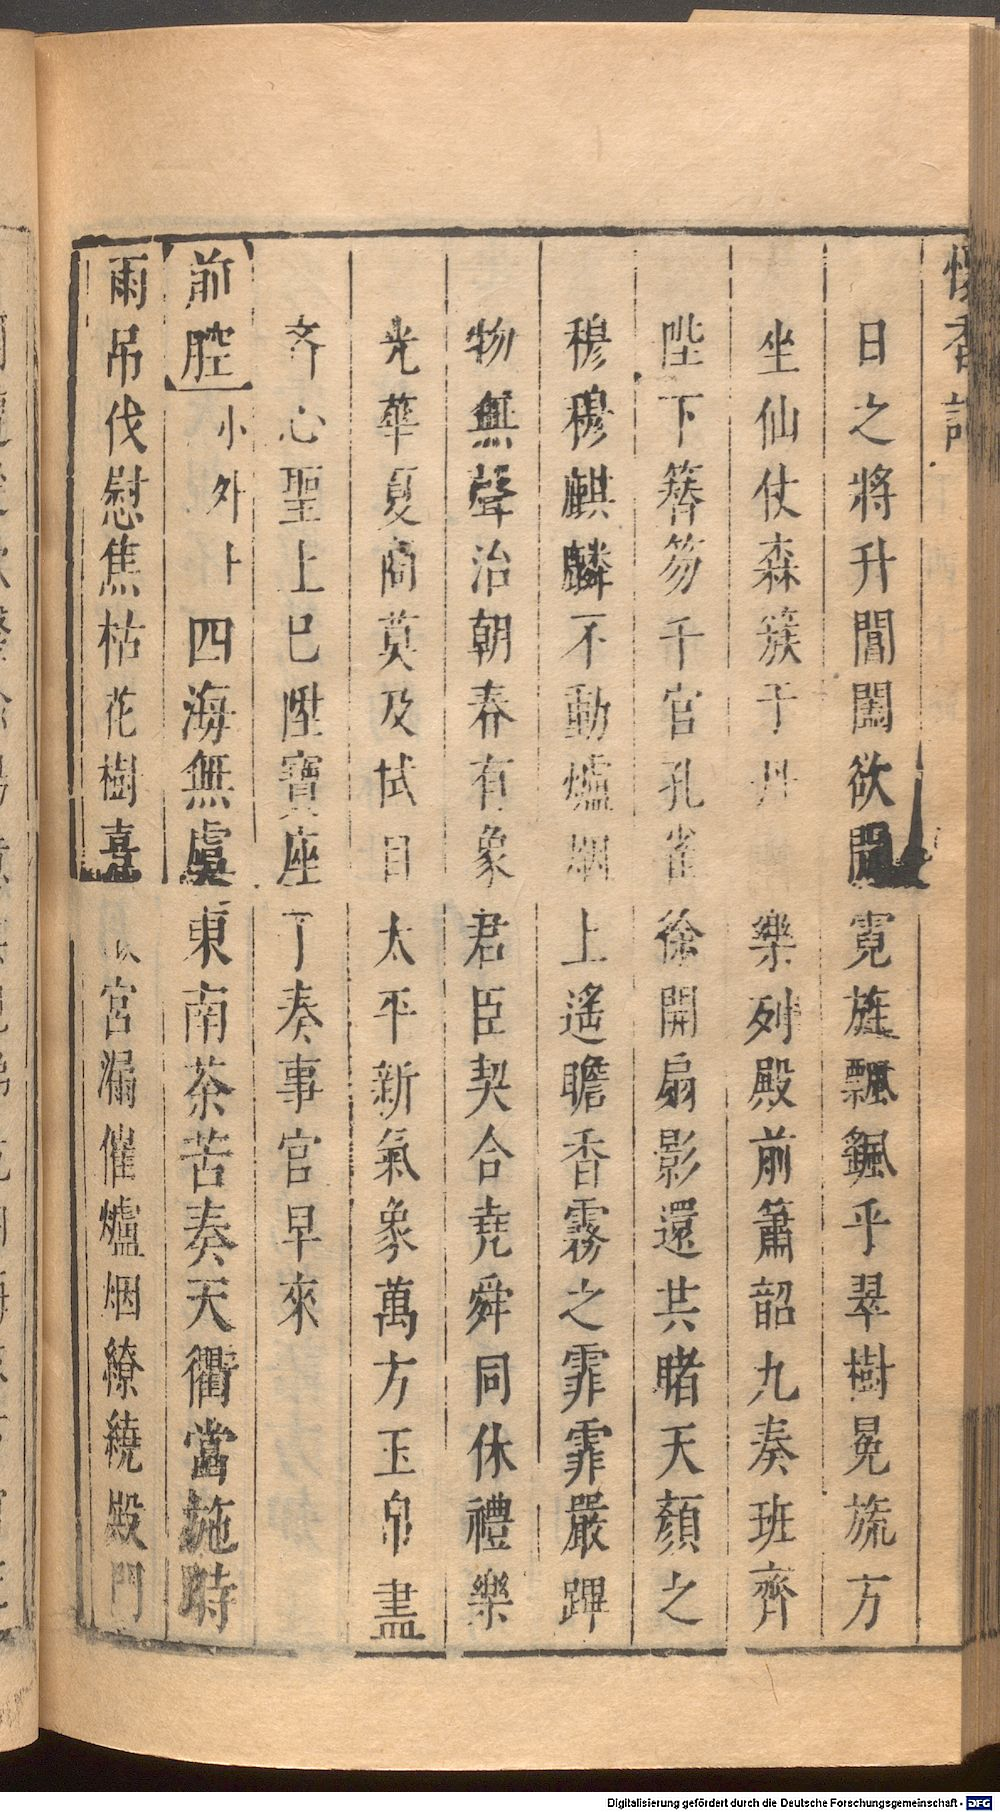 懷香記
日之將升閶闔欲開霓旌飄颻乎翠樹冕旒方
坐仙仗森簇于丹 樂列殿前簫韶九奏班齊
陛下簪笏千官孔雀徐開扇影還共睹天顏之
穆穆麒麟不動爐烟上遙瞻香霧之霏霏嚴蹕
物無聲治朝春有象君臣契合堯舜同休禮樂
光華夏商莫及拭目太平新氣象萬方玉帛盡
齐心聖上已陞寶座了奏事官早來
前腔 小外上 四海無虞東南茶苦奏天衢當施時
雨吊伐慰焦枯花樹喜 宮漏催爐烟繚繞殿門
Digitalisierung gefördert durch die Deutsche Forschungsgemeinschaft - DFG